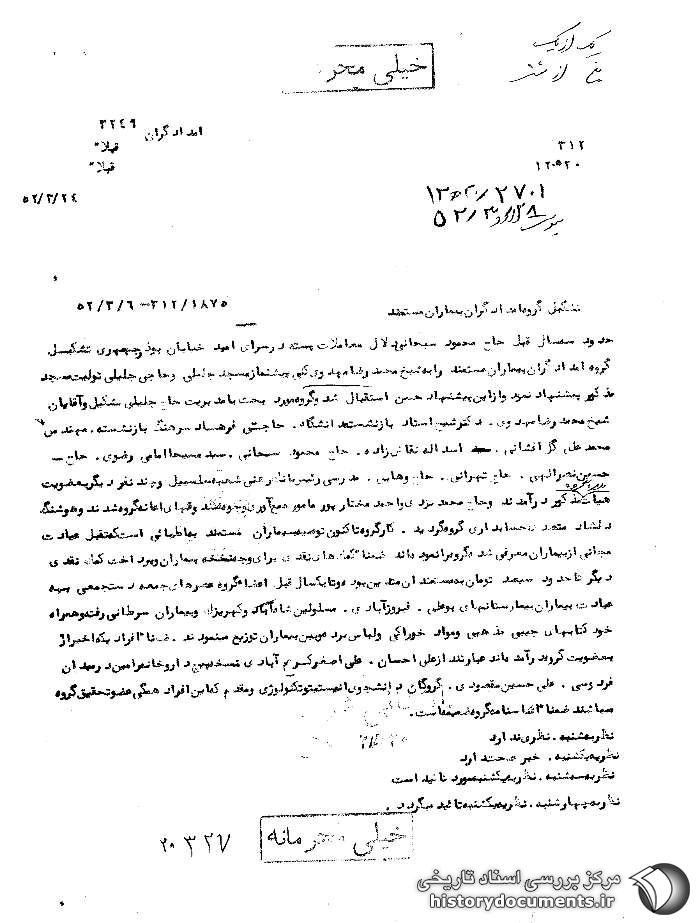 خیلی محر
امدادگران ۳۲۴۹
قبلا"
قبلا"
۳۱۲
۵۲/۳/۲۴
تشکیل گروه امدادگران بیماران مستمند
۵۲/۳/۶ - ۳۱۲/۱۸۷۵
حدود سه سال قبل حاج محمود سبحانی دلال معاملات پسته در سرای امید خیابان بوذرجمهری تشکیل
گروه امدادگران بیماران مستمند را به شیخ محمد رضا مهدوی کنی پیشنماز مسجد جلیلی و حاجی جلیلی تولیت مسجد
مذکور پیشنهاد نمود و از این پیشنهاد حسن استقبال شد و گروه مورد بحث با مدیریت حاج جلیلی تشکیل و آقایان
شیخ محمد رضا مهدوی . دکتر شیخ استاد بازنشسته دانشگاه . حاجتی فرهساد سرهنگ بازنشسته . مهندس
محمد علی گل افشانی . اسداله نقاش زاده . حاج محمود سبحانی . سید مسیحا امامی رضوی . حاج
حسین نصرالهی . حاج تهرانی . حاج وهابی . مدرسی رئیس بانک درعنی شعبه سلسبیل و چند نفر دیگر بعضویت
هیات مذکور در آمدند و حاج محمد یزدی و احمد مختارپور مامور جمع آوری وجوه نقد و قبض اعانه گروه شدند و هوشنگ
دلشاد متصدی حسابداری گروه گردید . کار گروه تاکنون توصیه بیماران مستمند به اطبائی است که تقبل عیادت
مجانی از بیماران معرفی شده گروه را نموده اند ضمنا" کمک های نقدی برای وجه نسخه بیماران و پرداخت کمک نقدی
دیگر تا حدود سیصد تومان به مستمندان متدین بوده و تا یکسال قبل اعضاء گروه عصرهای جمعه دستجمعی به
عیادت بیماران بیمارستانهای بوعلی . فیروزآبادی . مسلولین شاه آباد و کهریزک و بیماران سرطانی رفته و همراه
خود کتابهای جیبی مذهبی و مواد خوراکی و لباس برده و بین بیماران توزیع مینمودند . ضمنا" افرادیکه اخیرا"
بعضویت گروه در آمده اند عبارتند از علی احسان . علی اصغر کریم آبادی نسخه پیچ داروخانه رامین در میدان
فردوسی . علی حسین مقصودی . گروگان دانشجوی انستیتو تکنولوژی و مقدم که این افراد همگی عضو تحقیق گروه
میباشند ضمنا" اساسنامه گروه ضمیمه است .
نظریه شنبه . نظری ندارد
نظریه یکشنبه . خبر صحت دارد
نظریه سه شنبه . نظریه یکشنبه مورد تائید است
نظریه چهارشنبه . نظریه یکشنبه تائید میگردد .
خیلی محرمانه
۲۰ ۳۲۷
مرکز بررسی اسناد تاریخی
historydocuments.ir